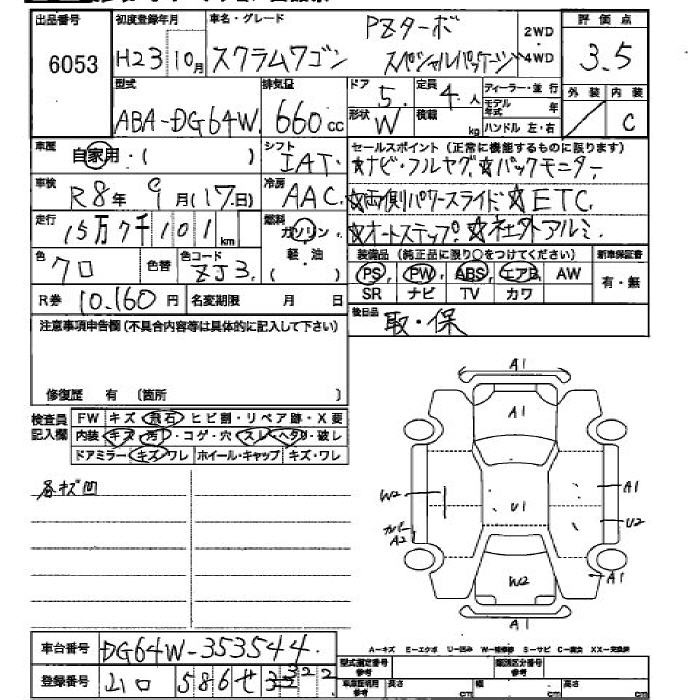 出品番号 初度登録年月 車名・グレード 評価点
6053 H23 10月 スクラムワゴン PZターボ スペシャルパッケージ 2WD・4WD 3.5
型式 排気量 ドア 定員 ディーラー・並行 外装 内装
ABA-DG64W 660cc 5 4人 モデル年式 年 C
形状 W 積載 kg ハンドル 左・右
車歴 自家用・( ) シフト IAT セールスポイント (正常に機能するものに限ります)
☆ナビ・フルセグ☆バックモニター
車検 R8年 9月(17日) 冷房 AAC ☆両側パワースライド☆ETC
走行 15万7千101km 燃料 ガソリン・軽・油 ( ) ☆オートステップ ☆社外アルミ
色 クロ 色替 色コード ZJ3 装備品 (純正品に限り○をつけてください) 新車保証書
PS PW ABS エアB AW 有・無
SR ナビ TV カワ
R券 10,160円 名変期限 月 日 後日品 取・保
注意事項申告欄(不具合内容等は具体的に記入して下さい)
修復歴 有 〔箇所 〕
検査員記入欄 FW キズ・飛石・ヒビ割・リペア跡・X要
内装 キズ・汚れ・コゲ・穴 スレ・ヘタリ・破レ
ドアミラー キズ・ワレ ホイール・キャップ キズ・ワレ
各キズ凹
A1
A1
W2 A1
U1 U2
カバーA2
W2 A1
A1
車台番号 DG64W-353544
A-キズ E-エクボ U-凹み W-補修跡 S-サビ C-腐食 XX-交換済
登録番号 山口 586 せ 3322
型式指定番号 参考 類別区分番号 参考
車庫証明用 参考 長さ cm 幅 cm 高さ cm